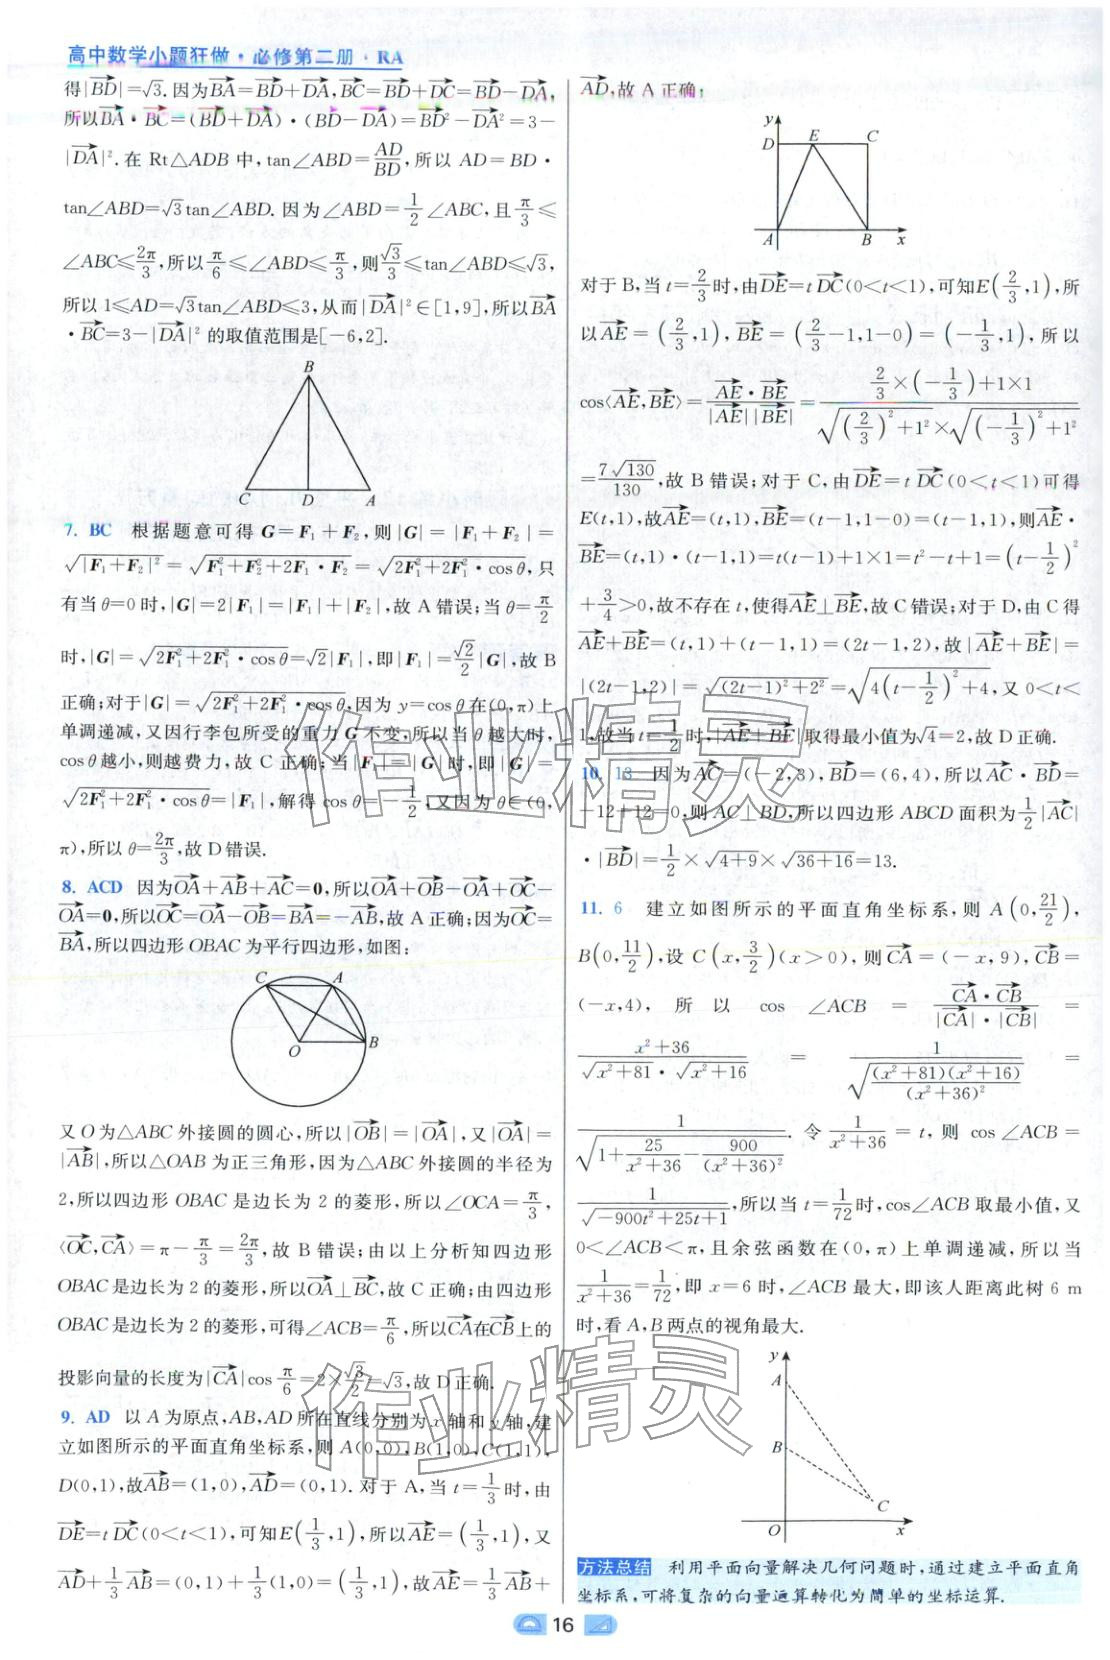 高中数学小题狂做·必修第二册·RA
得|BD|=√3.因为BA=BD+DA,BC=BD+DC=BD-DA,
所以BA·BC=(BD+DA)·(BD-DA)=BD²-DA²=3-
|DA|².在Rt△ADB中,tan∠ABD=AD/BD,所以AD=BD·
tan∠ABD=√3tan∠ABD.因为∠ABD=1/2∠ABC,且π/3≤
∠ABC≤2π/3,所以π/6≤∠ABD≤π/3,则√3/3≤tan∠ABD≤√3,
所以1≤AD=√3tan∠ABD≤3,从而|DA|²∈[1,9],所以BA
·BC=3-|DA|²的取值范围是[-6,2].
B
C D A
7. BC 根据题意可得G=F₁+F₂,则|G|=|F₁+F₂|=
√|F₁+F₂|²=√F₁²+F₂²+2F₁·F₂=√2F₁²+2F₁²·cosθ,只
有当θ=0时,|G|=2|F₁|=|F₁|+|F₂|,故A错误;当θ=π/2
时,|G|=√2F₁²+2F₁²·cosθ=√2|F₁|,即|F₁|=√2/2|G|,故B
正确;对于|G|=√2F₁²+2F₁²·cosθ,因为y=cosθ在(0,π)上
单调递减,又因行李包所受的重力G不变,所以当θ越大时,
cosθ越小,则越费力,故C正确;当|F₁|=|G|时,即|G|=
√2F₁²+2F₁²·cosθ=|F₁|,解得cosθ=-1/2,又因为θ∈(0,
π),所以θ=2π/3,故D错误.
8. ACD 因为OA+AB+AC=0,所以OA+OB-OA+OC-
OA=0,所以OC=OA-OB=BA=-AB,故A正确;因为OC=
BA,所以四边形OBAC为平行四边形,如图:
C A
O B
又O为△ABC外接圆的圆心,所以|OB|=|OA|,又|OA|=
|AB|,所以△OAB为正三角形,因为△ABC外接圆的半径为
2,所以四边形OBAC是边长为2的菱形,所以∠OCA=π/3,
⟨OC,CA⟩=π-π/3=2π/3,故B错误;由以上分析知四边形
OBAC是边长为2的菱形,所以OA⊥BC,故C正确;由四边形
OBAC是边长为2的菱形,可得∠ACB=π/6,所以CA在CB上的
投影向量的长度为|CA|cosπ/6=2×√3/2=√3,故D正确.
9. AD 以A为原点,AB,AD所在直线分别为x轴和y轴,建
立如图所示的平面直角坐标系,则A(0,0),B(1,0),C(1,1),
D(0,1),故AB=(1,0),AD=(0,1).对于A,当t=1/3时,由
DE=tDC(0<t<1),可知E(1/3,1),所以AE=(1/3,1),又
AD+1/3AB=(0,1)+1/3(1,0)=(1/3,1),故AE=1/3AB+
AD,故A正确;
y
D E C
A B x
对于B,当t=2/3时,由DE=tDC(0<t<1),可知E(2/3,1),所
以AE=(2/3,1),BE=(2/3-1,1-0)=(-1/3,1),所以
cos⟨AE,BE⟩=AE·BE/|AE||BE|=(2/3×(-1/3)+1×1)/(√(2/3)²+1²×√(-1/3)²+1²)
=7√130/130,故B错误;对于C,由DE=tDC(0<t<1)可得
E(t,1),故AE=(t,1),BE=(t-1,1-0)=(t-1,1),则AE·
BE=(t,1)·(t-1,1)=t(t-1)+1×1=t²-t+1=(t-1/2)²
+3/4>0,故不存在t,使得AE⊥BE,故C错误;对于D,由C得
AE+BE=(t,1)+(t-1,1)=(2t-1,2),故|AE+BE|=
|(2t-1,2)|=√(2t-1)²+2²=√4(t-1/2)²+4,又0<t<
1,故当t=1/2时,|AE+BE|取得最小值为√4=2,故D正确.
10. 13 因为AC=(-2,3),BD=(6,4),所以AC·BD=
-12+12=0,则AC⊥BD,所以四边形ABCD面积为1/2|AC|
·|BD|=1/2×√4+9×√36+16=13.
11. 6 建立如图所示的平面直角坐标系,则A(0,21/2),
B(0,11/2),设C(x,3/2)(x>0),则CA=(-x,9),CB=
(-x,4),所以cos∠ACB=CA·CB/|CA|·|CB|=
(x²+36)/(√x²+81·√x²+16)=1/√((x²+81)(x²+16)/(x²+36)²)=
1/√(1+25/(x²+36)-900/(x²+36)²).令1/(x²+36)=t,则cos∠ACB=
1/√(-900t²+25t+1),所以当t=1/72时,cos∠ACB取最小值,又
0<∠ACB<π,且余弦函数在(0,π)上单调递减,所以当
1/(x²+36)=1/72,即x=6时,∠ACB最大,即该人距离此树6 m
时,看A,B两点的视角最大.
y
A
B
C
O x
方法总结 利用平面向量解决几何问题时,通过建立平面直角
坐标系,可将复杂的向量运算转化为简单的坐标运算.
16
作业精灵
作业精灵